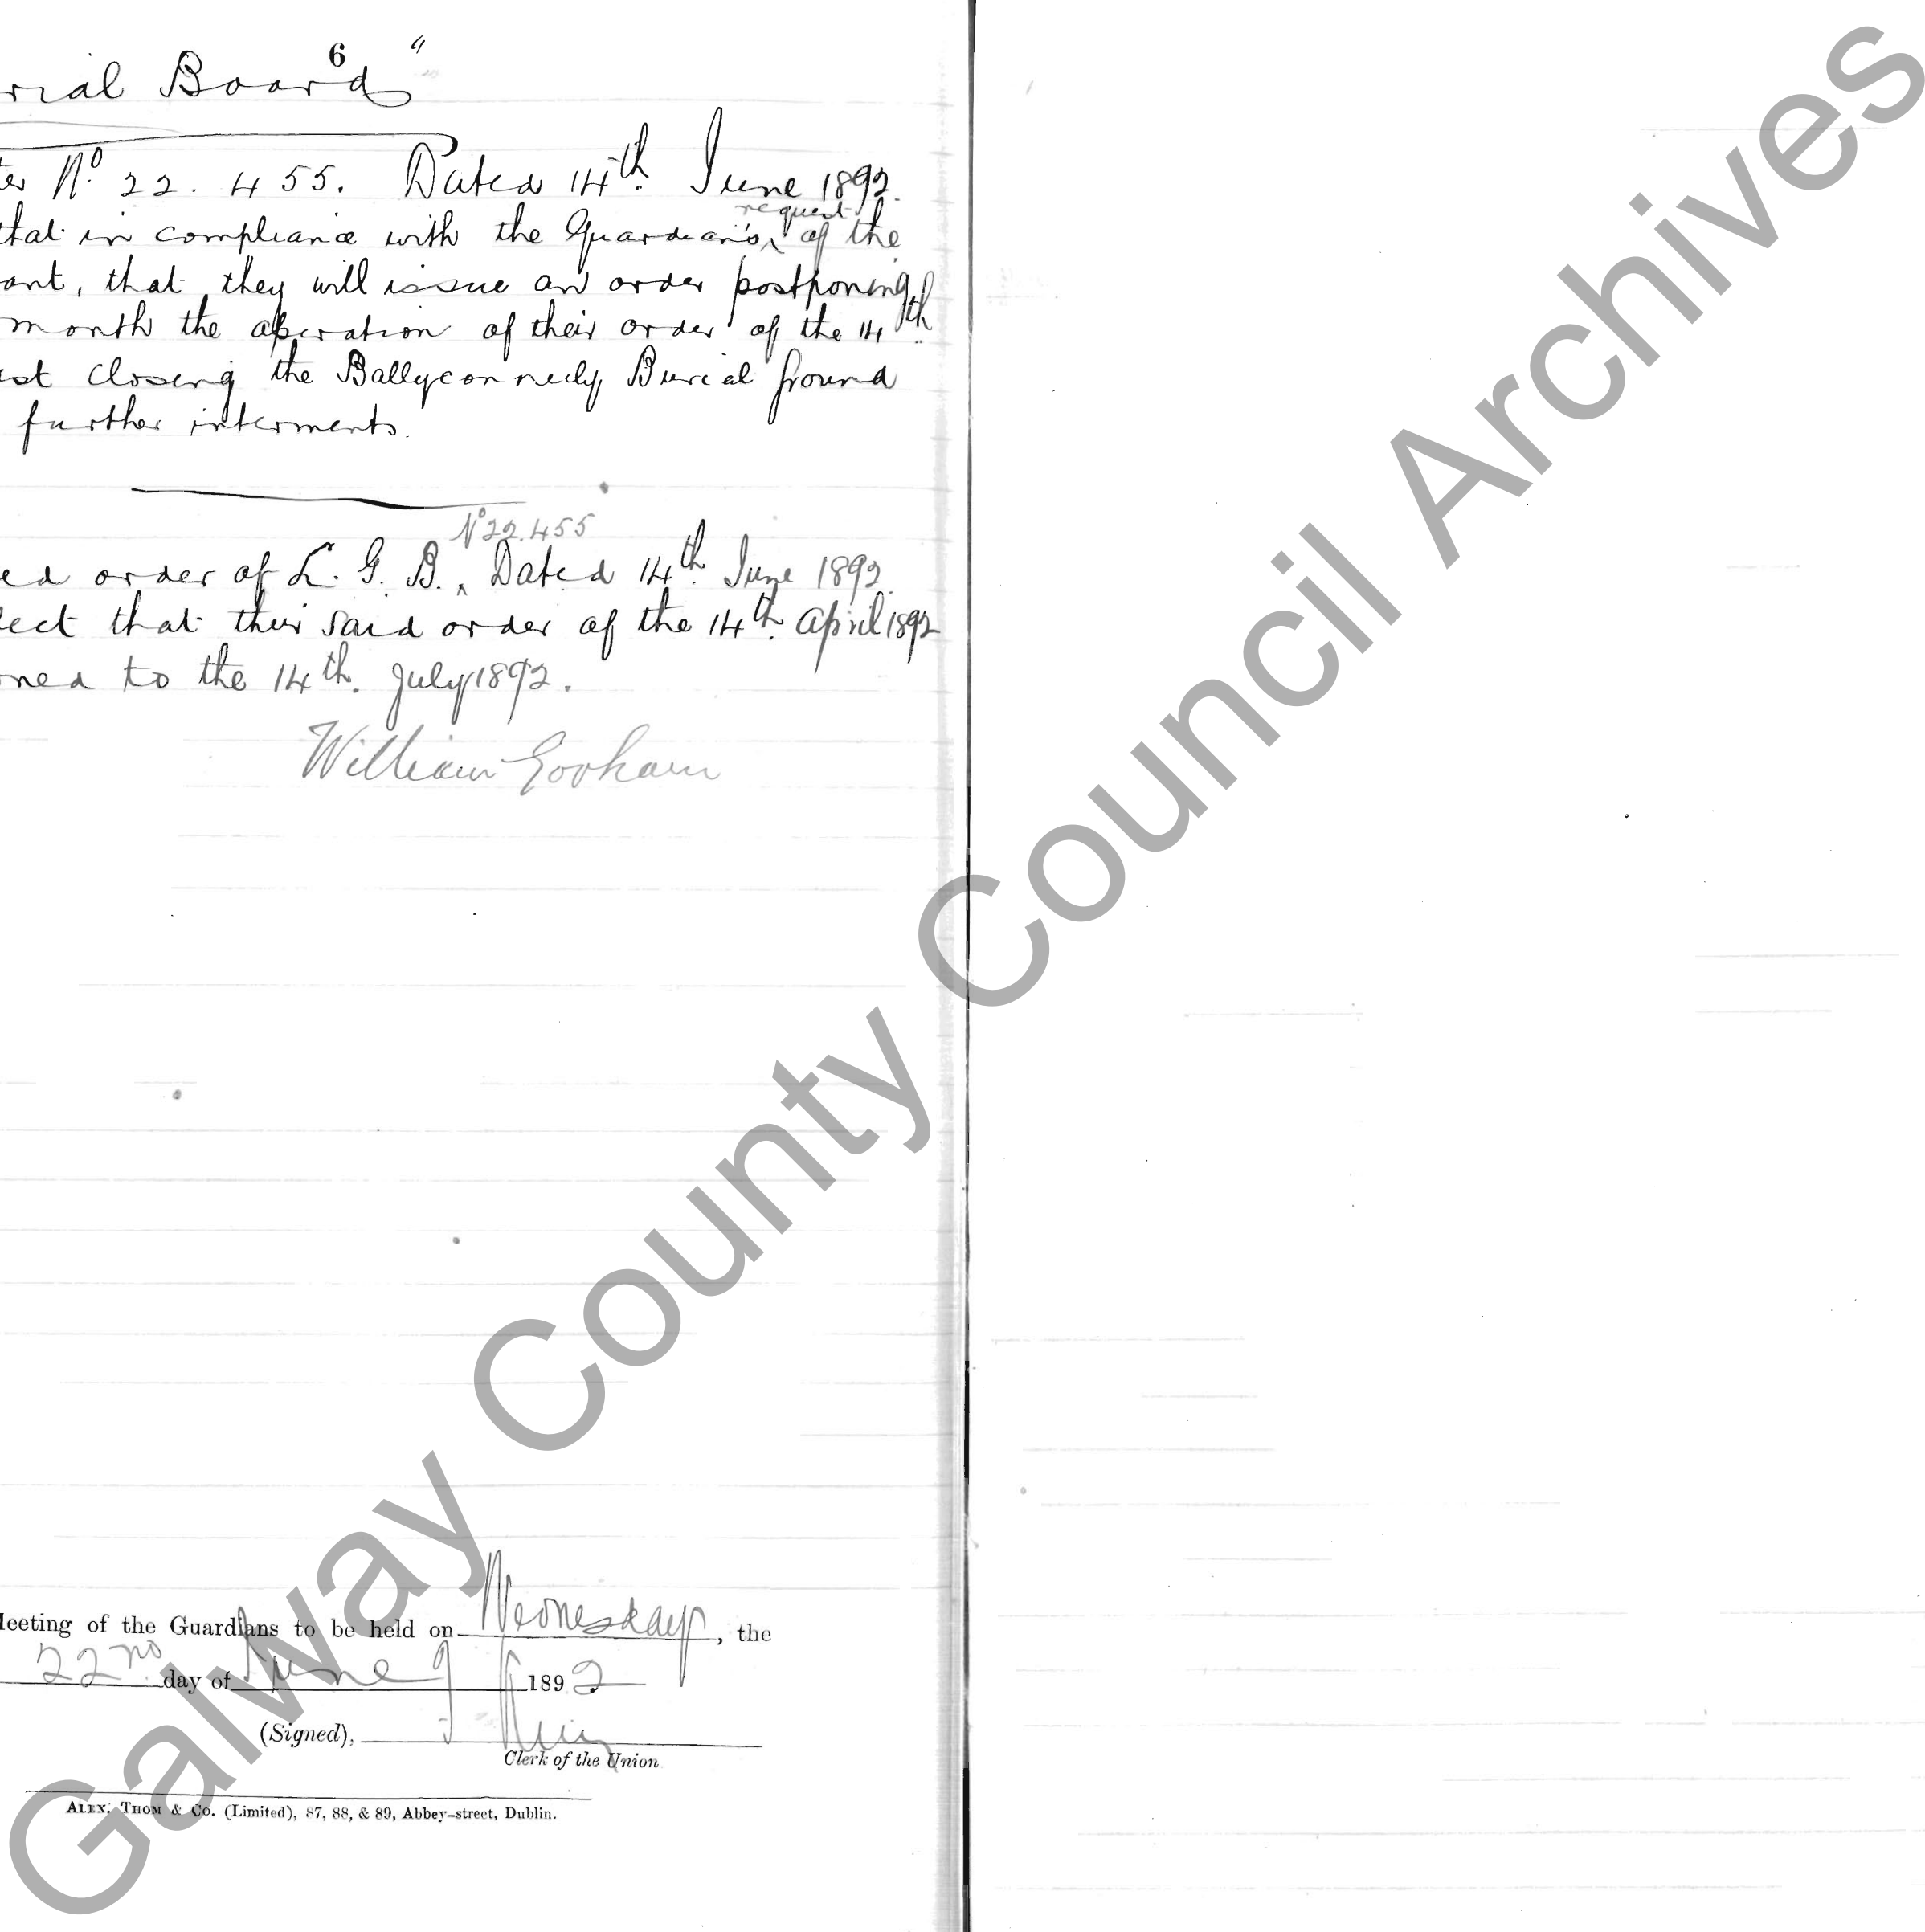 6
rial Board"
er No 22.455. Dated 14th June 1892.
that in compliance with the Guardian's request of the
ant, that they will issue an order postponing
month the operation of their order of the 14th
st closing the Ballyconneely Burial Ground
further interments.
No 22.455
ed order of L. G. B., Dated 14th June 1892.
ect that their said order of the 14th April 1892
ned to the 14th. July 1892.
William Gorham
Meeting of the Guardians to be held on Wednesday, the
22nd day of June 1892
(Signed),
Clerk of the Union
ALEX. THOM & CO. (Limited), 87, 88, & 89, Abbey-street, Dublin.
Galway County Council Archives